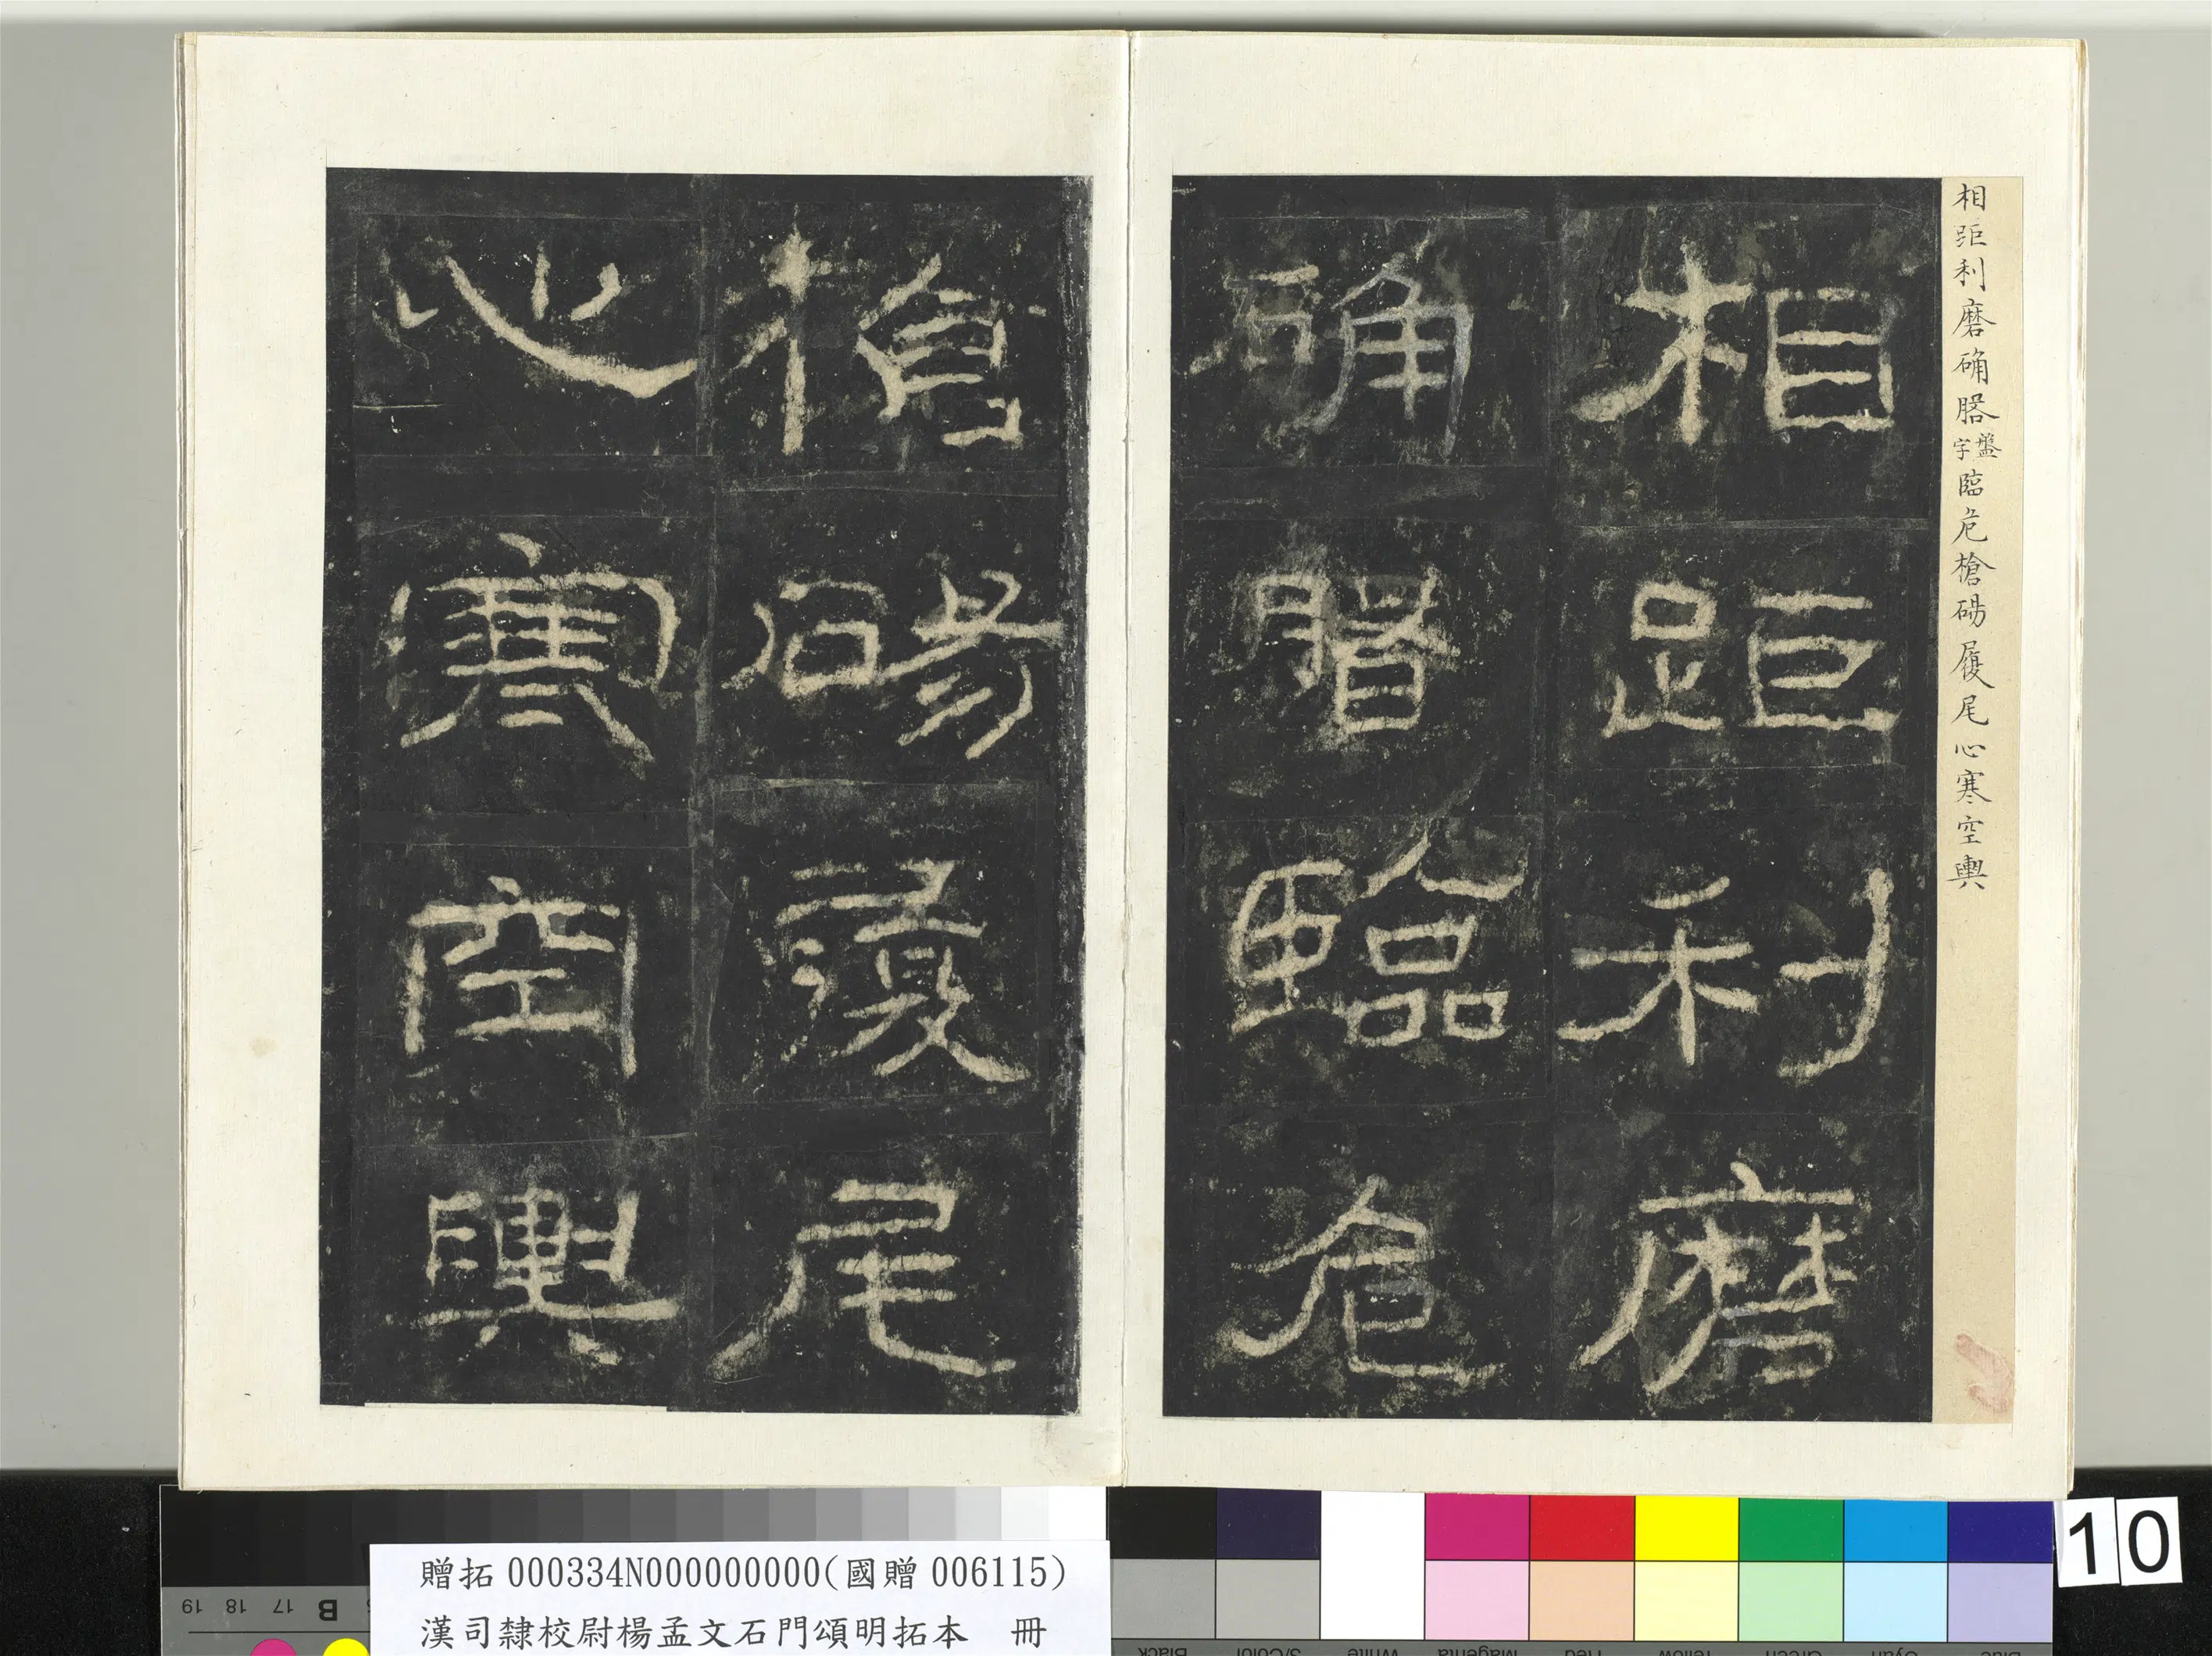 相距利磨确𦞦盤字臨危槍碭履尾心寒空輿
相距利磨
确臨危
槍碭履尾
心寒空輿
10
贈拓 000334N000000000(國贈 006115)
漢司隸校尉楊孟文石門頌明拓本 冊
19 18 17 B
Black 3/Color White Magenta Red Yellow Green Cyan Blue